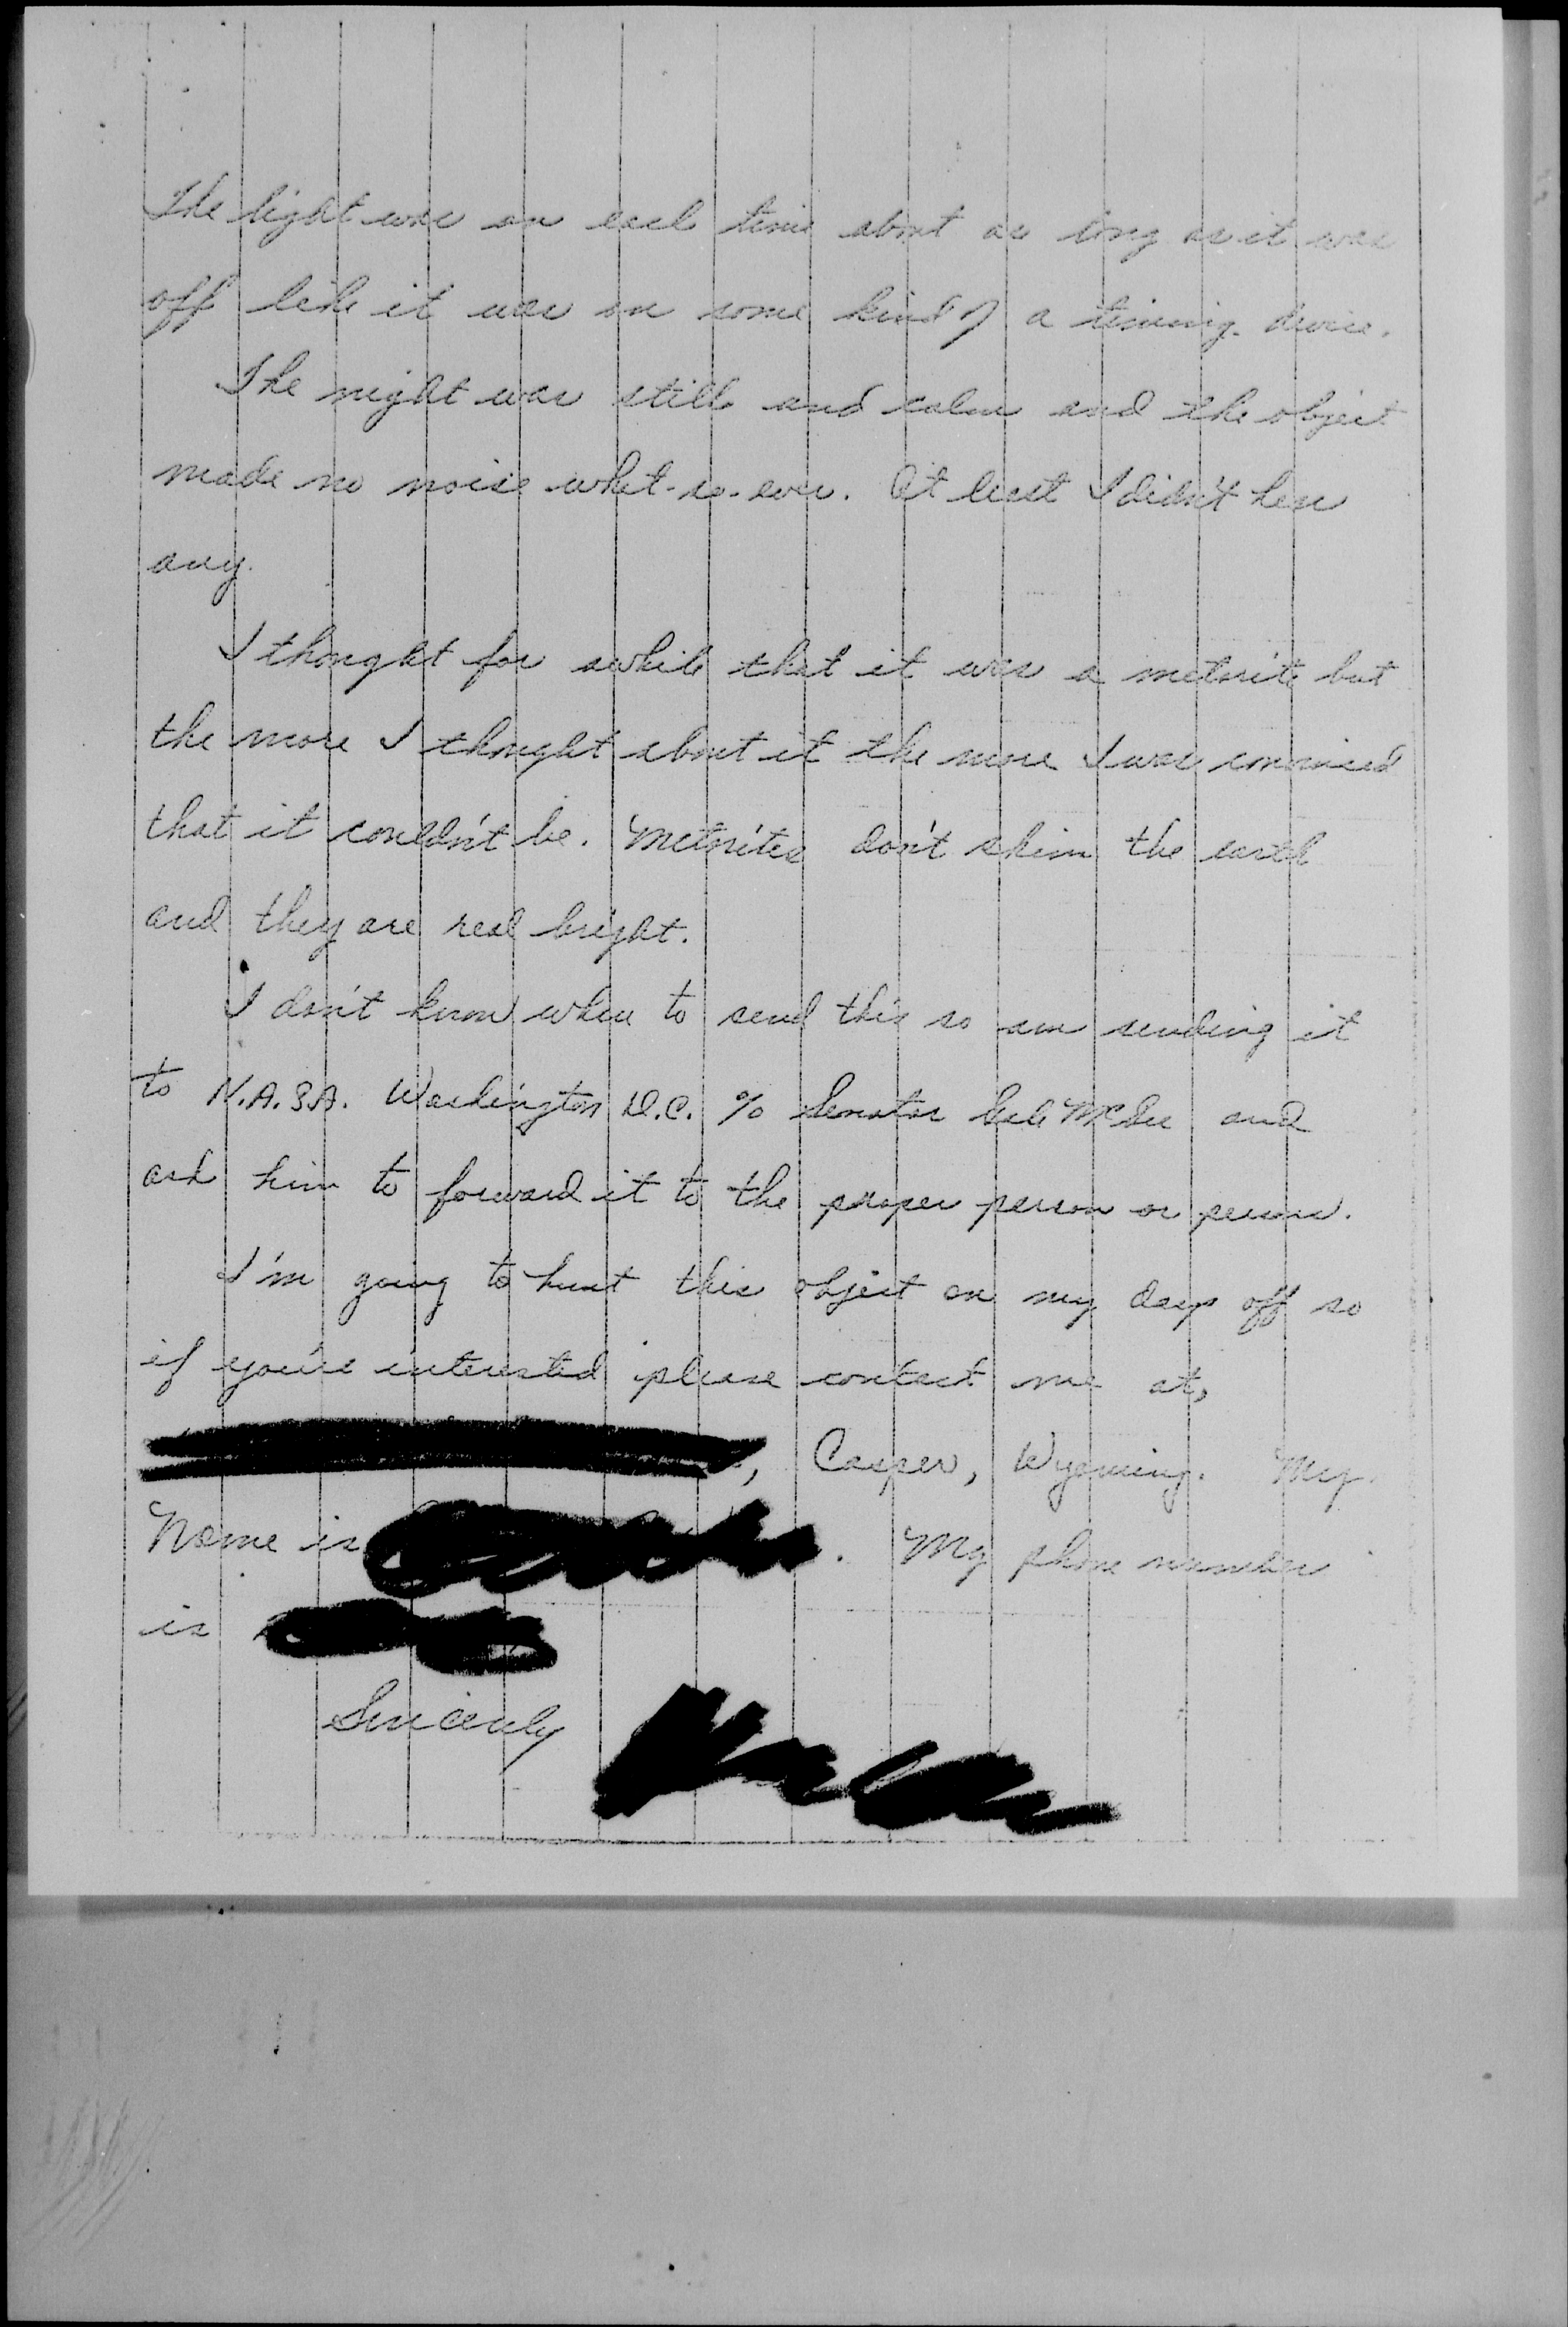 The light was on each time about as long as it was
off like it was on some kind of a timing device.
The night was still and calm and the object
made no noise what-so-ever. At least I didn't hear
any.
I thought for awhile that it was a metorite but
the more I thought about it the more I was convinced
that it couldn't be. Metorites don't skim the earth
and they are real bright.
I don't know where to send this so am sending it
to N.A.S.A. Washington D.C. % Senator Gale McGee and
ask him to forward it to the proper person or persons.
I'm going to hunt this object on my days off so
if you're interested please contact me at,
, Casper, Wyoming. My
Name is . My phone number
is
Sincerely